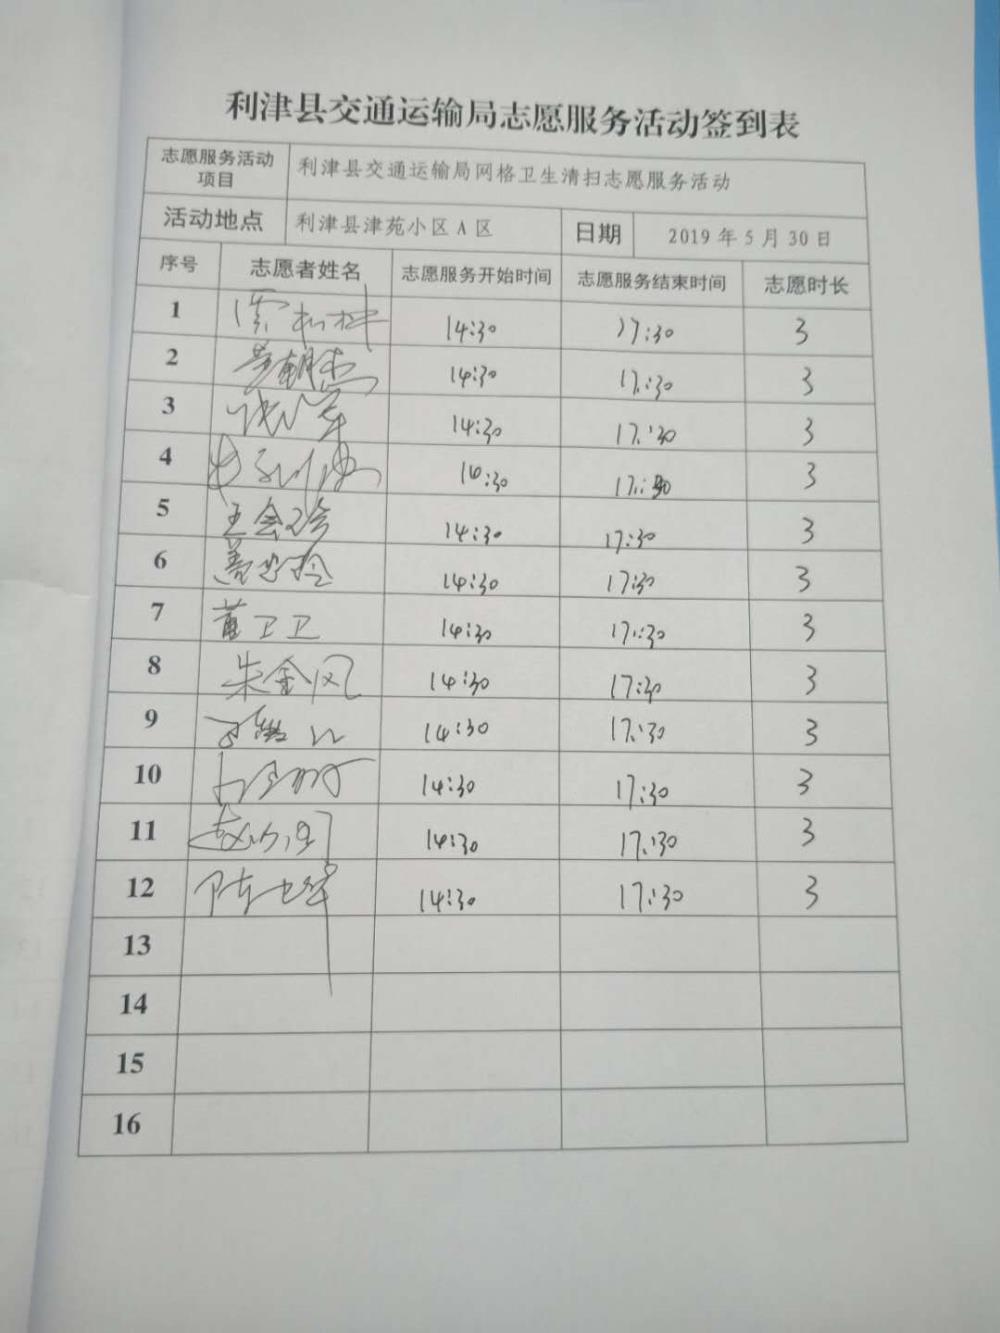 利津县交通运输局志愿服务活动签到表
志愿服务活动项目 利津县交通运输局网格卫生清扫志愿服务活动
活动地点 利津县津苑小区 A 区 日期 2019 年 5 月 30 日
序号 志愿者姓名 志愿服务开始时间 志愿服务结束时间 志愿时长
1 14:30 17:30 3
2 14:30 17:30 3
3 14:30 17:30 3
4 14:30 17:30 3
5 王会珍 14:30 17:30 3
6 14:30 17:30 3
7 董卫卫 14:30 17:30 3
8 朱金风 14:30 17:30 3
9 14:30 17:30 3
10 14:30 17:30 3
11 14:30 17:30 3
12 14:30 17:30 3
13
14
15
16